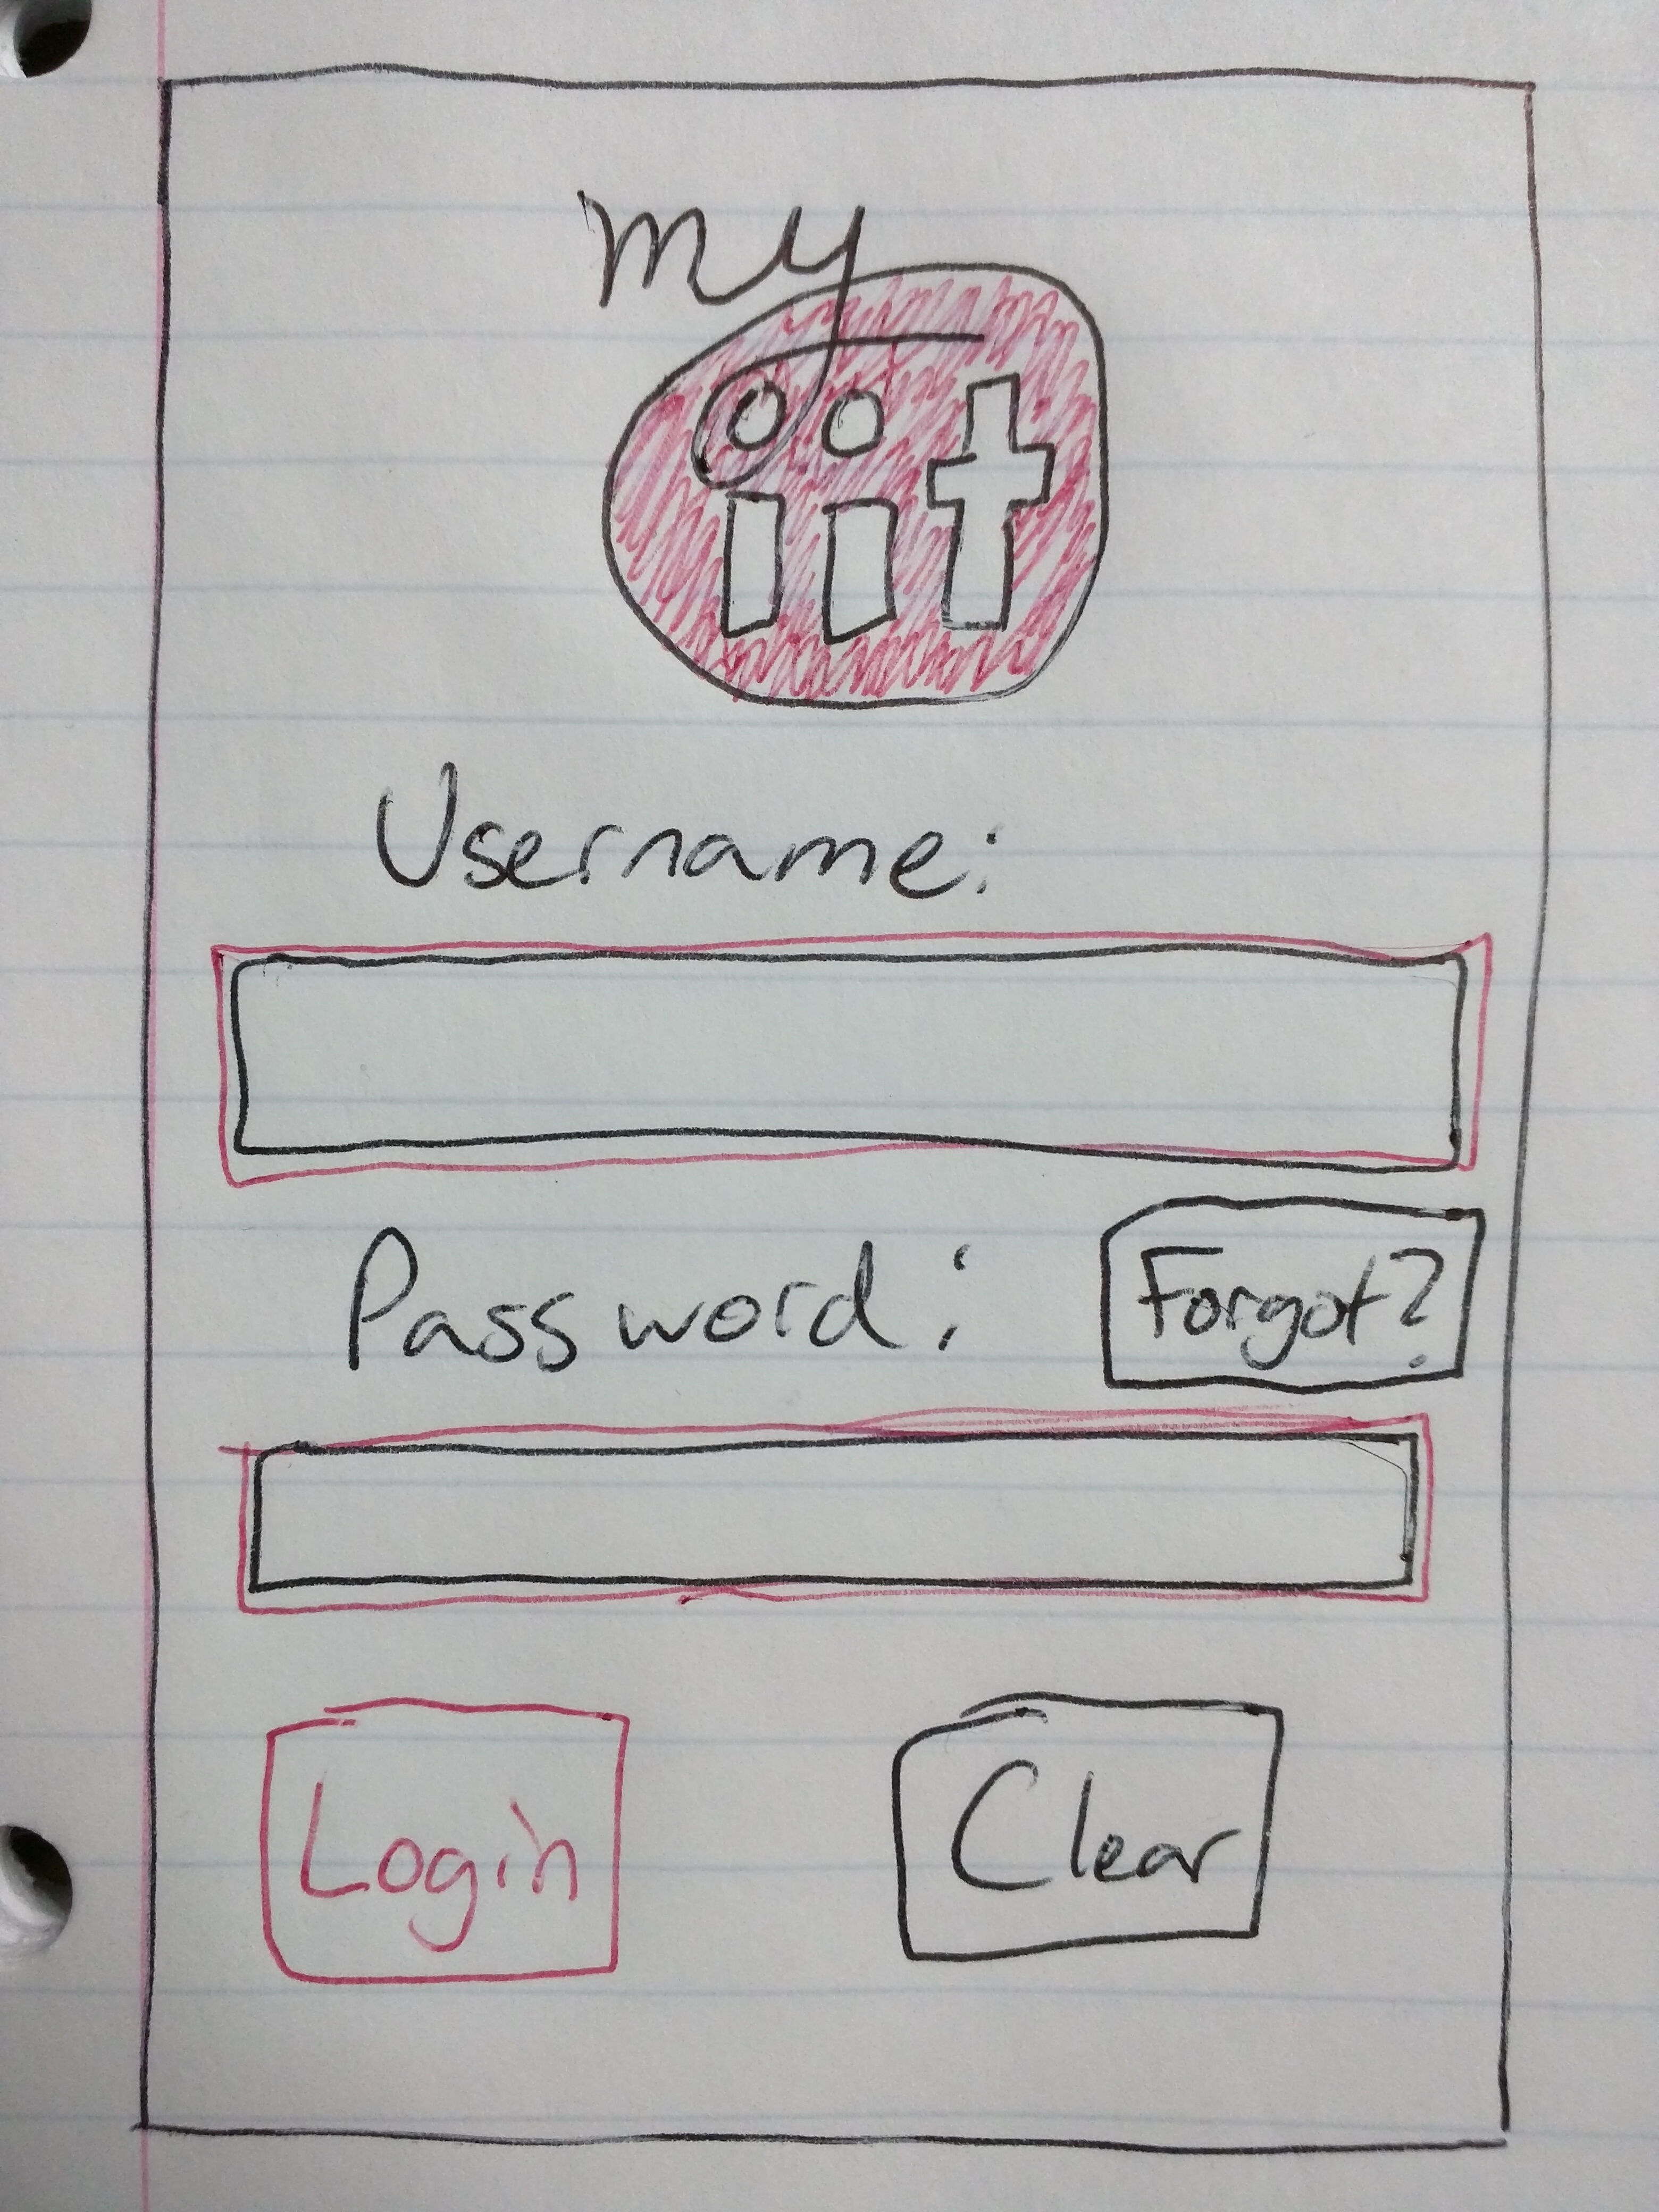 my
iit
Username:
Password: Forgot?
Login Clear